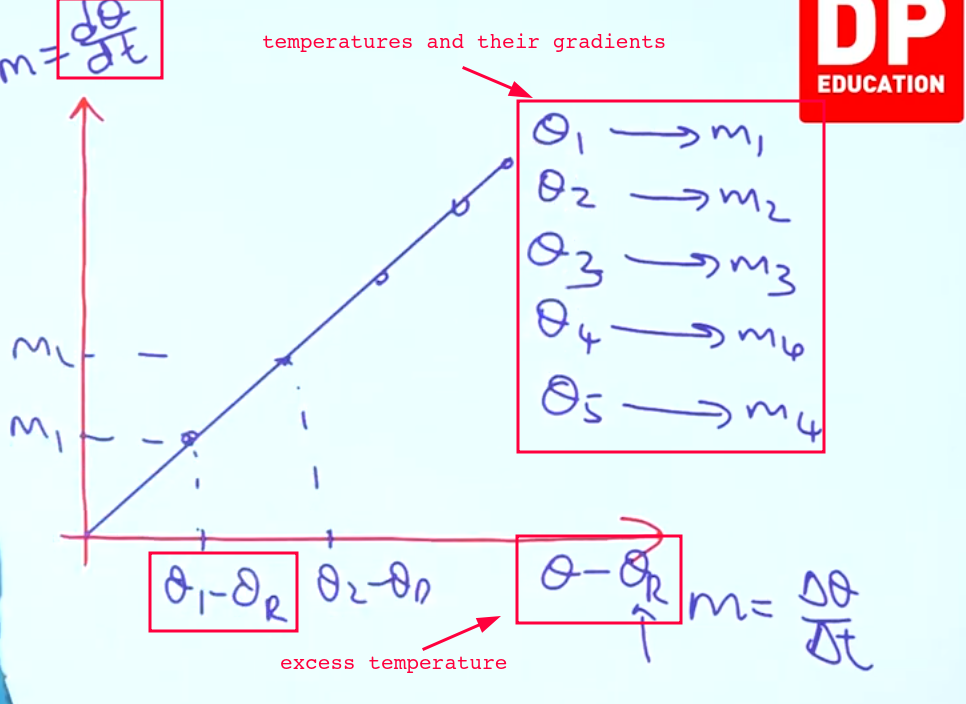 m = dθ/dt
temperatures and their gradients
DP
EDUCATION
θ1 → m1
θ2 → m2
θ3 → m3
θ4 → m4
θ5 → m4
m1
θ1-θR
θ-θR
m = Δθ/Δt
excess temperature